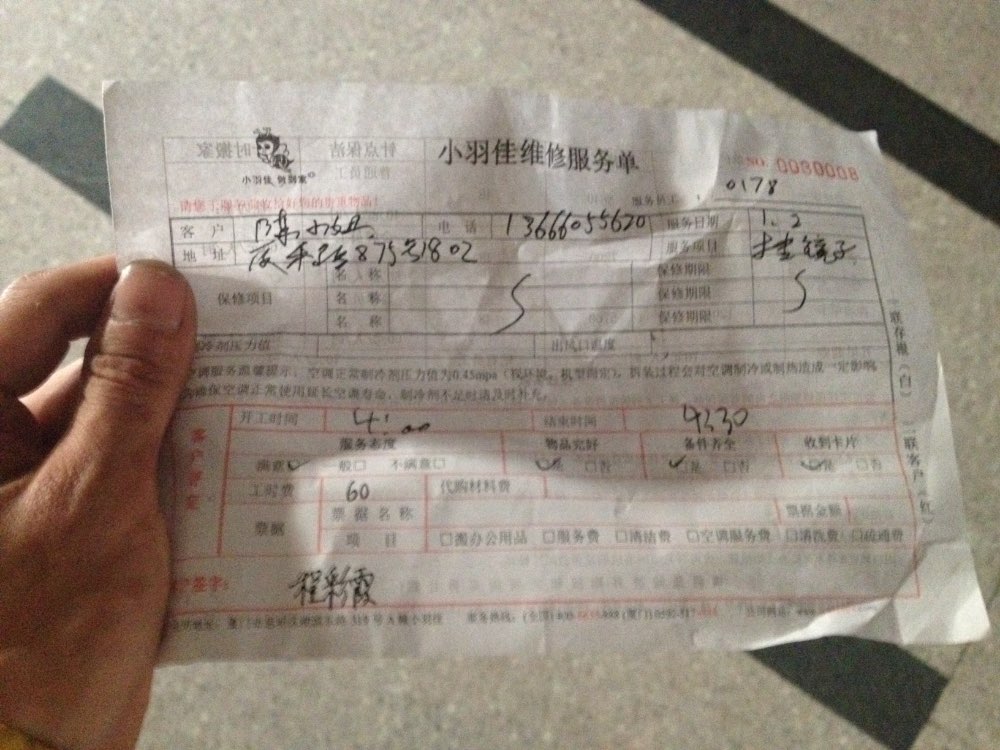 小羽佳维修服务单
NO. 0080008
小羽佳 做到家
0178
客户 电话 13666055620 服务日期 1.2
地址 875号1802 服务项目 挂镜子
保修项目 名称 保修期限
名称 保修期限
名称 保修期限
出风口温度
空调服务温馨提示:空调正常制冷剂压力值为0.45mpa(视环境、机型而定),拆装过程会对空调制冷或制热造成一定影响
确保空调正常使用延长空调寿命,制冷剂不足时请及时补充。
开工时间 4:00 结束时间 4:30
服务态度 物品完好 备件齐全 收到卡片
满意✓ 一般□ 不满意□ ✓是 □否 ✓是 □否 ✓是 □否
工时费 60 代购材料费
票据 票据名称 票据金额
项目 □办公用品 □服务费 □清洁费 □空调服务费 □清洗费 □疏通费
签字: 程彩霞
服务热线:
一联存根(白) 二联客户(红)